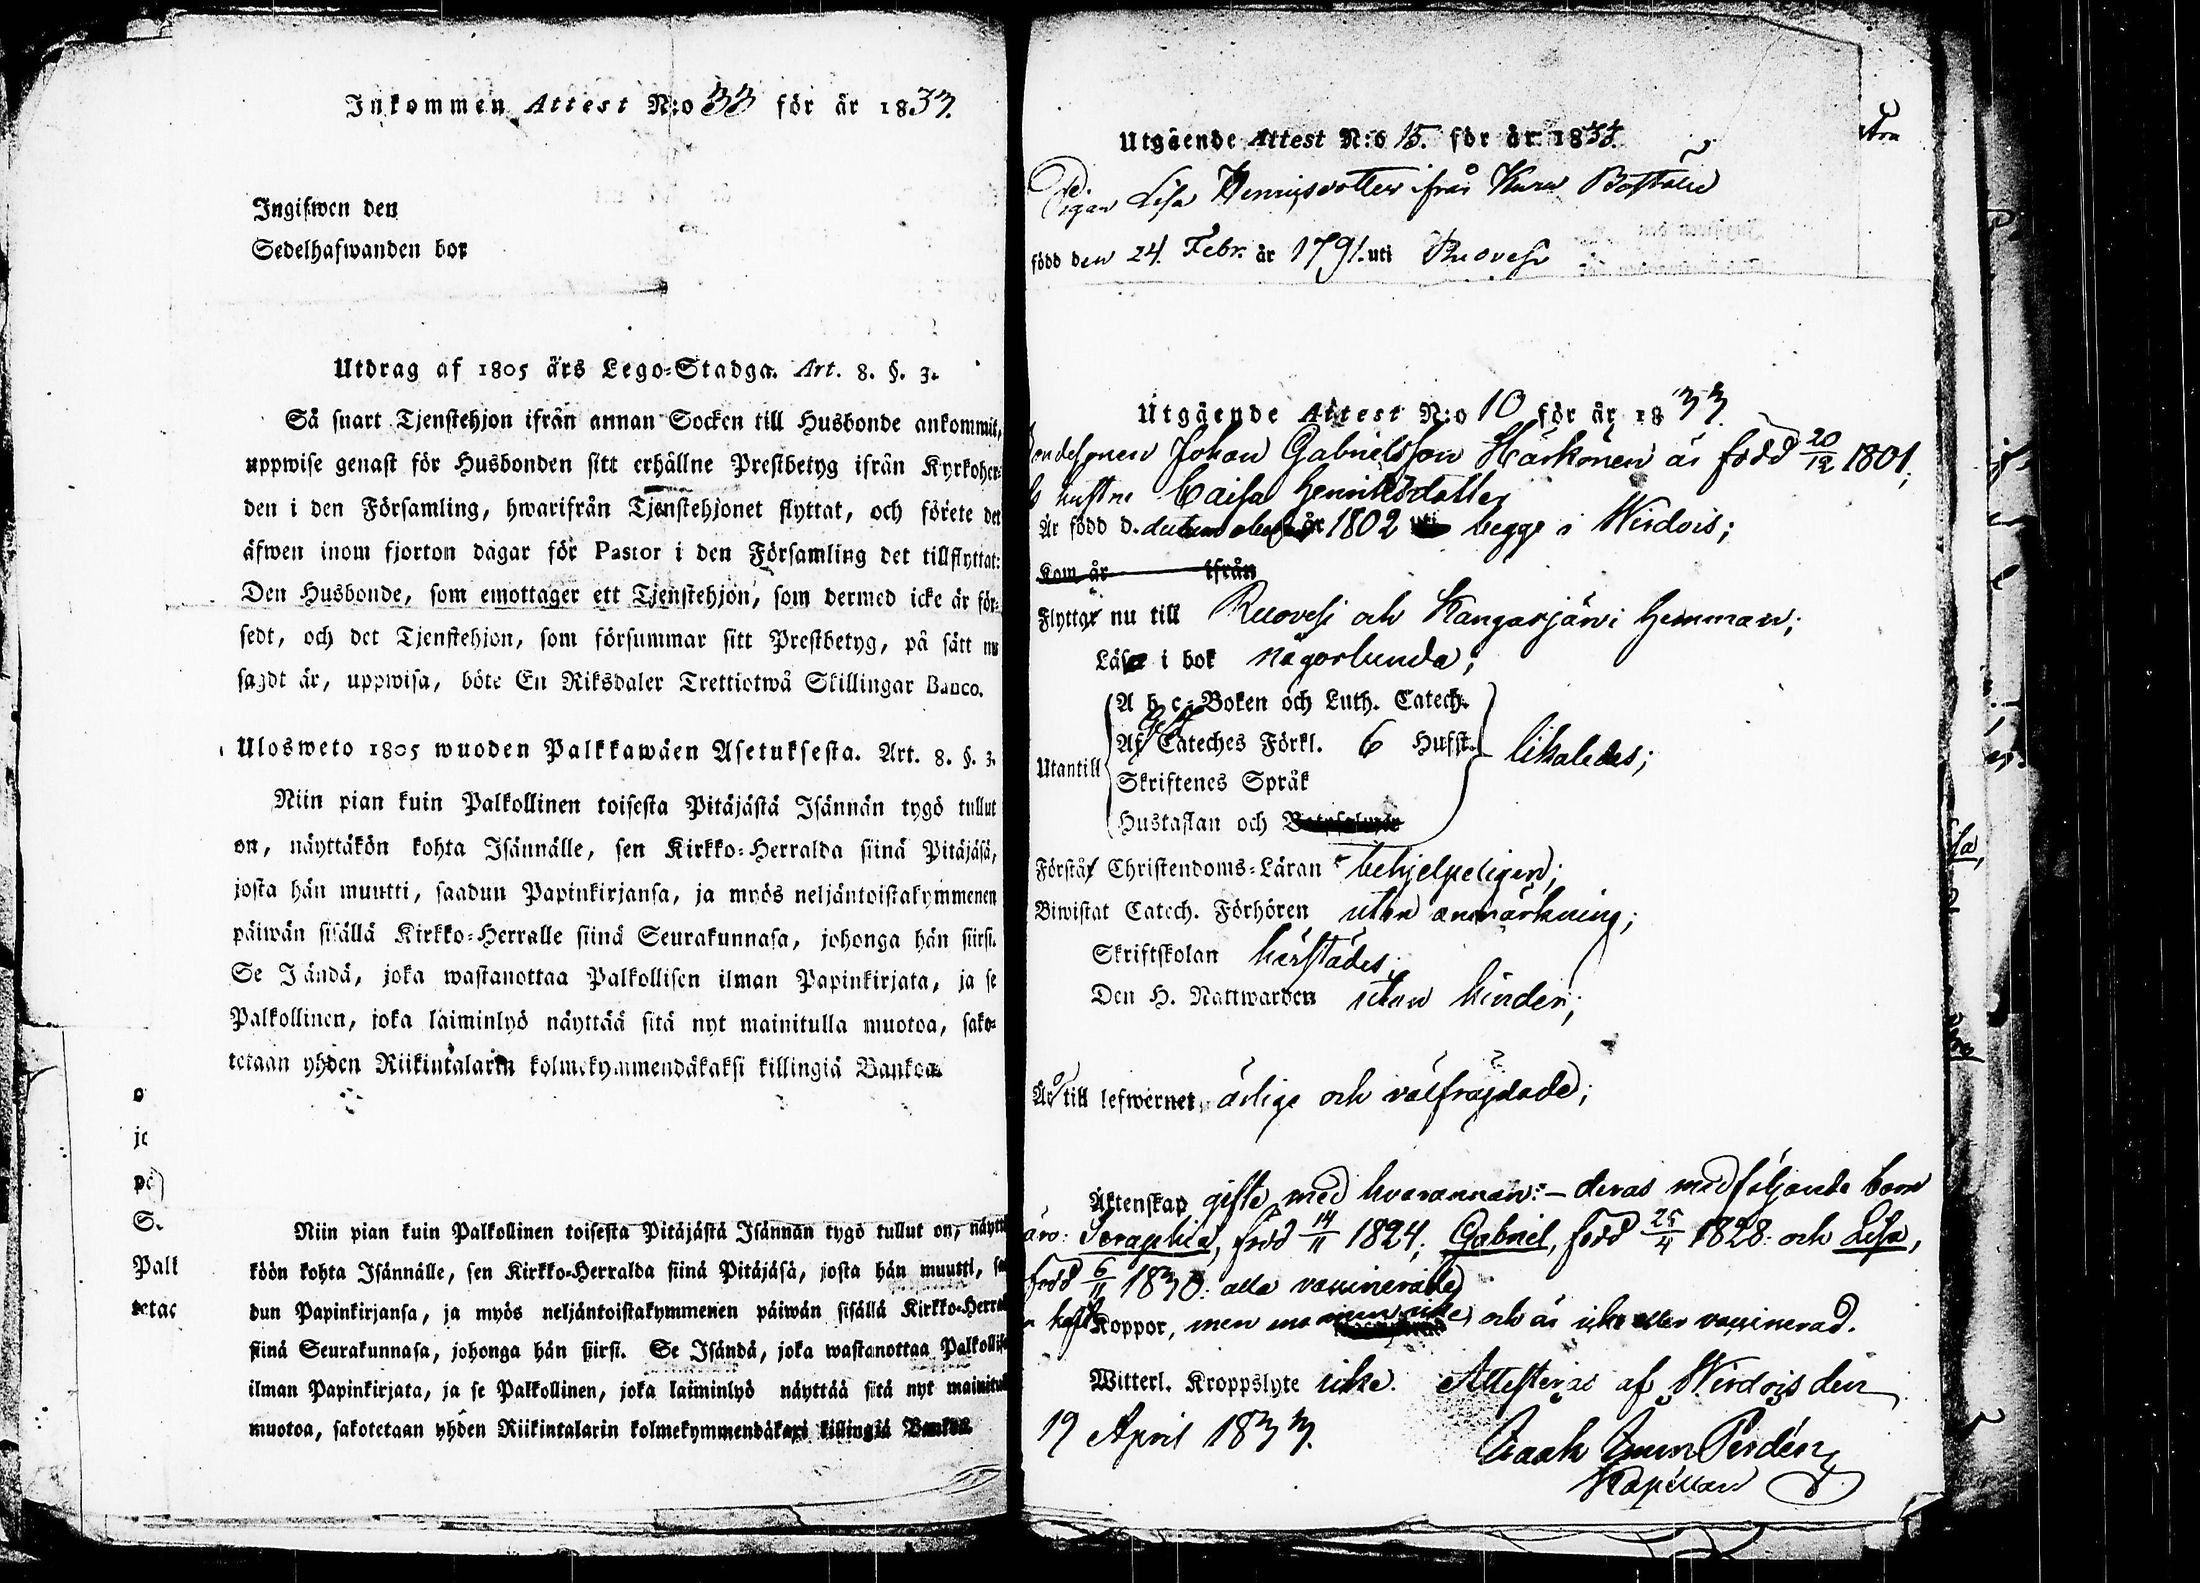 Inkommen Attest N:o 33 för år 1833.
Ingifwen den
Sedelhafwanden bor
Utdrag af 1805 års Lego-Stadga. Art. 8. §. 3.
Så snart Tjenstehjon ifrån annan Socken till Husbonde ankommit,
uppwise genast för Husbonden sitt erhållne Prestbetyg ifrån Kyrkoher-
den i den Församling, hwarifrån Tjenstehjonet flyttat, och förete det
äfwen inom fjorton dagar för Pastor i den Församling det tillflyttat:
Den Husbonde, som emottager ett Tjenstehjon, som dermed icke är för-
sedt, och det Tjenstehjon, som försummar sitt Prestbetyg, på sätt nu
sagdt är, uppwisa, böte En Riksdaler Trettiotwå Skillingar Banco.
Ulosweto 1805 wuoden Palkkawäen Asetuksesta. Art. 8. §. 3.
Niin pian kuin Palkollinen toisesta Pitäjästä Isännän tygö tullut
on, näyttäkön kohta Isännälle, sen Kirkko-Herralda siinä Pitäjäsä,
josta hän muutti, saadun Papinkirjansa, ja myös neljäntoistakymmenen
päiwän sisällä Kirkko-Herralle siinä Seurakunnasa, johonga hän siirsi.
Se I ändä, joka wastanottaa Palkollisen ilman Papinkirjata, ja se
Palkollinen, joka laiminlyö näyttää sitä nyt mainitulla muotoa, sako-
tetaan yhden Riikintalarin kolmekymmendäkaksi killingiä Bankoa.
o
jo
pä
S.
Palk
tetac
Niin pian kuin Palkollinen toisesta Pitäjästä Isännän tygö tullut on, näytt
köön kohta Isännälle, sen Kirkko-Herralda siinä Pitäjäsä, josta hän muutti, sa
dun Papinkirjansa, ja myös neljäntoistakymmenen päiwän sisällä Kirkko-Herral
siinä Seurakunnasa, johonga hän siirsi. Se Isändä, joka wastanottaa Palkollis
ilman Papinkirjata, ja se Palkollinen, joka laiminlyö näyttää sitä nyt mainitul
muotoa, sakotetaan yhden Riikintalarin kolmekymmendäkaxi killingiä Bankoa
Utgående Attest N:o 15. för år 1833.
Pigan Lisa Henricsdotter ifrån Kuru
född den 24. Febr. år 1791. uti Ruovesi
Utgående Attest N:o 10 för år 1833.
ondesonen Johan Gabrielsson Härkönen är född 20/12 1801;
hustru Caisa Henriksdotter
Är född d. år 1802 begge i Wirdois;
Kom år ifrån
Flytta nu till Ruovesi och Kangasjärwi hemman;
Läsa i bok någorlunda;
Utantill
A b c-Boken och Luth. Catech.
Af Cateches Förkl. 6 Hufst. likaledes;
Skriftenes Språk
Hustaflan och
Förstå Christendoms-Läran behjelpeligen;
Biwistat Catech. Förhören utan anmärkning;
Skriftskolan härstädes;
Den H. Nattwarden utan hinder;
Är till lefwernet ärlige och välfrägdade;
Äktenskap gifte med hvarannan: - deras medföljande barn
äro: Seraphia, född 14/11 1824; Gabriel, född 25/4 1828: och Lisa,
född 6/11 1830: alla vaccinerade
haft Koppor, men och är icke eller vaccinerad.
Witterl. Kroppslyte icke. Attesteras af Wirdois den
19 April 1833.
Isaak Perdén
Kapellan